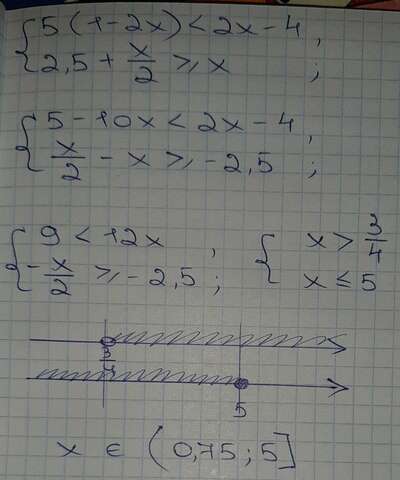 { 5(1-2x) < 2x-4 ,
2,5 + x/2 ⩾ x ;
{ 5-10x < 2x-4 ,
x/2 - x ⩾ -2,5 ;
{ 9 < 12x , { x > 3/4
-x/2 ⩾ -2,5 ; x ≤ 5
3/4
5
x ∈ (0,75 ; 5]